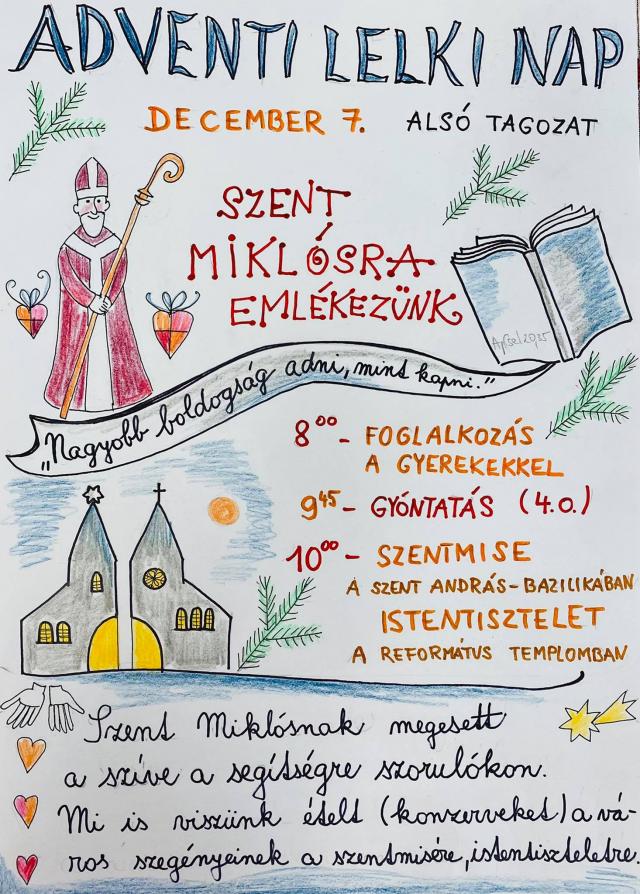 ADVENTI LELKI NAP
DECEMBER 7. ALSÓ TAGOZAT
SZENT
MIKLÓSRA
EMLÉKEZÜNK
ApCsel 20,35
„Nagyobb boldogság adni, mint kapni."
8⁰⁰ - FOGLALKOZÁS
A GYEREKEKKEL
9⁴⁵ - GYÓNTATÁS (4.o.)
10⁰⁰ - SZENTMISE
A SZENT ANDRÁS-BAZILIKÁBAN
ISTENTISZTELET
A REFORMÁTUS TEMPLOMBAN
Szent Miklósnak megesett
a szíve a segítségre szorulókon.
Mi is viszünk ételt (konzerveket) a vá-
ros szegényeinek a szentmisére, istentiszteletre.